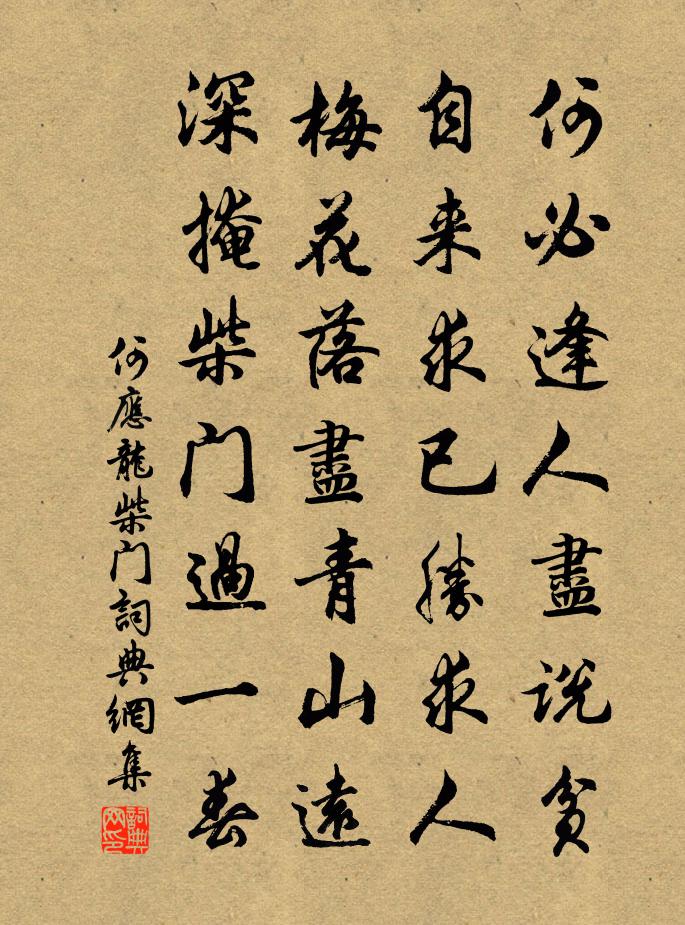 何必逢人盡説貧
自来求已勝求人
梅花落盡青山遠
深掩柴门過一春
何應龍柴门詞典網集
詞典网印